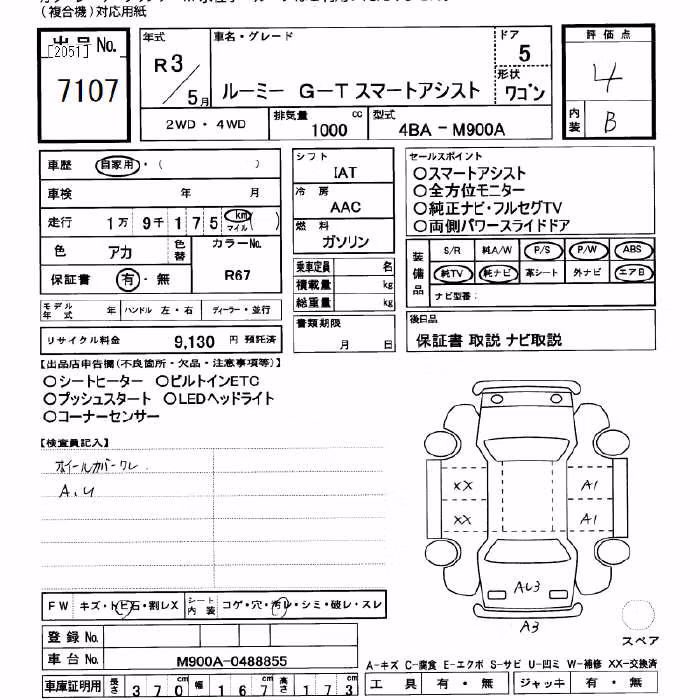 (複合機)対応用紙
出品No.
[2051]
7107
年式
R3/5月
車名・グレード
ルーミー G-T スマートアシスト
ドア
5
形状
ワゴン
評価点
4
内装
B
2WD・4WD
排気量
1000 cc
型式
4BA-M900A
車歴 自家用・( )
車検 年 月
走行 1万9千175 km マイル ( )
色 アカ 色替
カラーNo.
R67
保証書 有・無
モデル年式 年 ハンドル 左・右 ディーラー・並行
リサイクル料金 9,130 円 預託済
シフト
IAT
冷房
AAC
燃料
ガソリン
乗車定員 名
積載量 kg
総重量 kg
書類期限
月 日
セールスポイント
○スマートアシスト
○全方位モニター
○純正ナビ・フルセグTV
○両側パワースライドドア
装備品
S/R 純A/W P/S P/W ABS
純TV 純ナビ 革シート 外ナビ エアB
ナビ型番:
後日品
保証書 取説 ナビ取説
【出品店申告欄(不良箇所・欠品・注意事項等)】
○シートヒーター ○ビルトインETC
○プッシュスタート ○LEDヘッドライト
○コーナーセンサー
【検査員記入】
ホイールカバークレ
A.U
XX A1
XX A1
AU3
A3
スペア
FW キズ・トビ石・割レX シート内装 コゲ・穴・汚レ・シミ・破レ・スレ
登録No.
車台No. M900A-0488855
車庫証明用 長さ 370cm 幅 167cm 高さ 173cm
A-キズ C-腐食 E-エクボ S-サビ U-凹ミ W-補修 XX-交換済
工具 有・無 ジャッキ 有・無